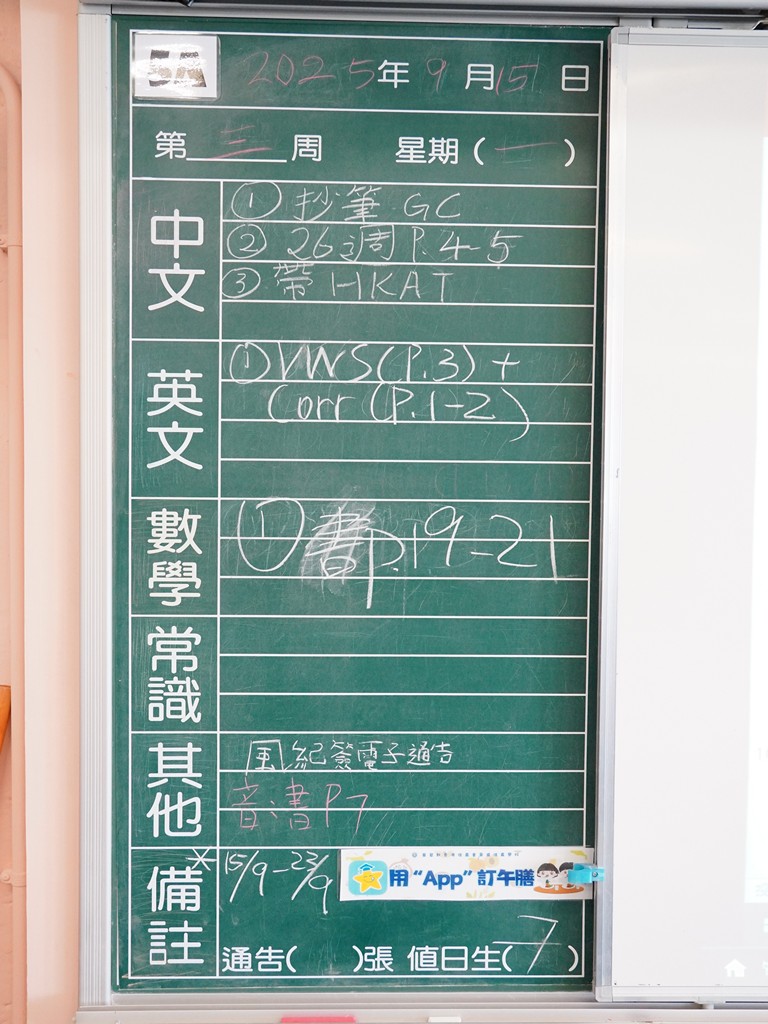 5A 2025年9月15日
第三周 星期(一)
中文
① 抄筆.GC
② 26週P.4-5
③ 帶HKAT
英文
① VWS(P.3) +
Corr (P.1-2)
數學
① 書P.19-21
常識
其他
紀簽電子通告
音:書P7
備註
*15/9-23/9
用“App”訂午膳
通告( )張 值日生(7)